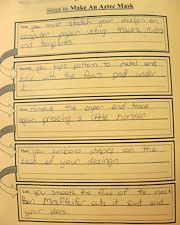 Steps to Make An Aztec Mask
First, you must sketch your design on
computer paper using tracers, rulers
and templates.
Second, you tape pattern to metal and
trace with the foam pad under
it.
Next, remove the paper and trace
again pressing a little harder
you emboss shapes on the
back of your desingn
Last, you smooth the face of the mask
then cut it out and
your done.